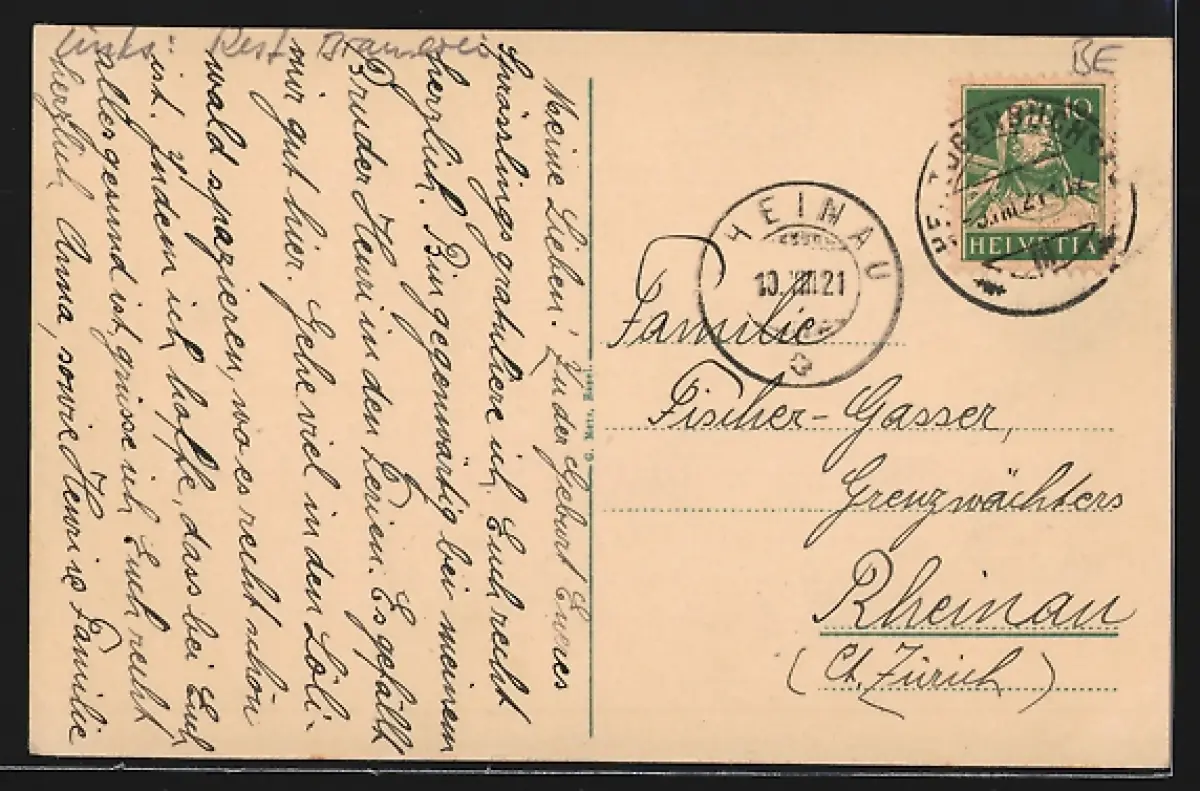 links: Rest. Brauerei
BE
Meine Lieben! Zu der Geburt Eueres
Sprösslings gratuliere ich Euch recht
herzlich. Bin gegenwärtig bei meinem
Bruder Henri in den Ferien. Es gefällt
mir gut hier. Gehe viel in den Löli-
wald spazieren, wo es recht schön
ist. Indem ich hoffe, dass bei Euch
alles gesund ist, grüsse ich Euch recht
herzlich Anna, sowie Henri & Familie
G. Metz, Basel.
10
HELVETIA
HERZOGENBUCHSEE
RHEINAU
10.VIII.21
Familie
Fischer-Gasser,
Grenzwächters
Rheinau
(Ct. Zürich)